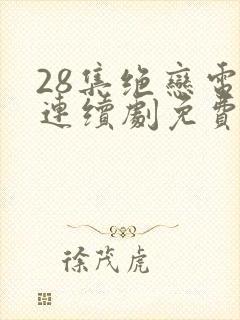 28集绝戀電
連續劇免費
徐茂虎